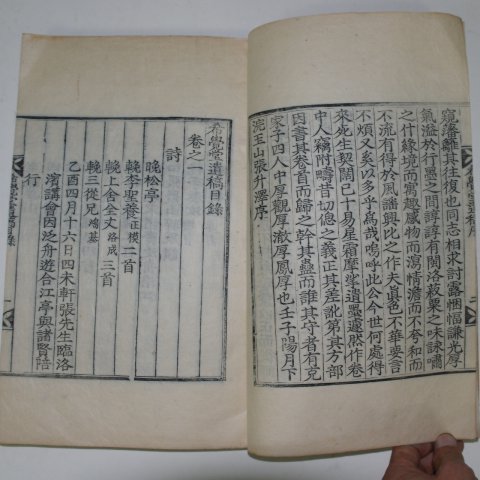 窺藩籬其往復也同志相求討露悃愊謙光厚
氣溢於行墨之間諄諄有閩洛菽粟之味諫嘯
之什緣境而寓趣感物而瀉情澹而不夸和而
不流有得於風諷興比之作夫眞色不華要言
不煩又奚以多乎爲哉嗚呼此公今世何處得
來死生契闊已十易星霜摩挲遺墨遽然作卷
中人竊附疇昔切偲之義正其差訛第其方部
因書其卷首而歸之幹其蠱而誰其守者有克
家子四人中厚觀厚澈厚鳳厚也壬子陽月下
浣玉山張升澤序
希覺堂遺稿目錄
卷之一
詩
晚松亭
輓李聖養正模二首
輓上舍金丈洛成三首
輓三從兄鴻基
乙酉四月十六日四未軒張先生臨洛
濱講會因泛舟遊合江亭與諸賢陪
行